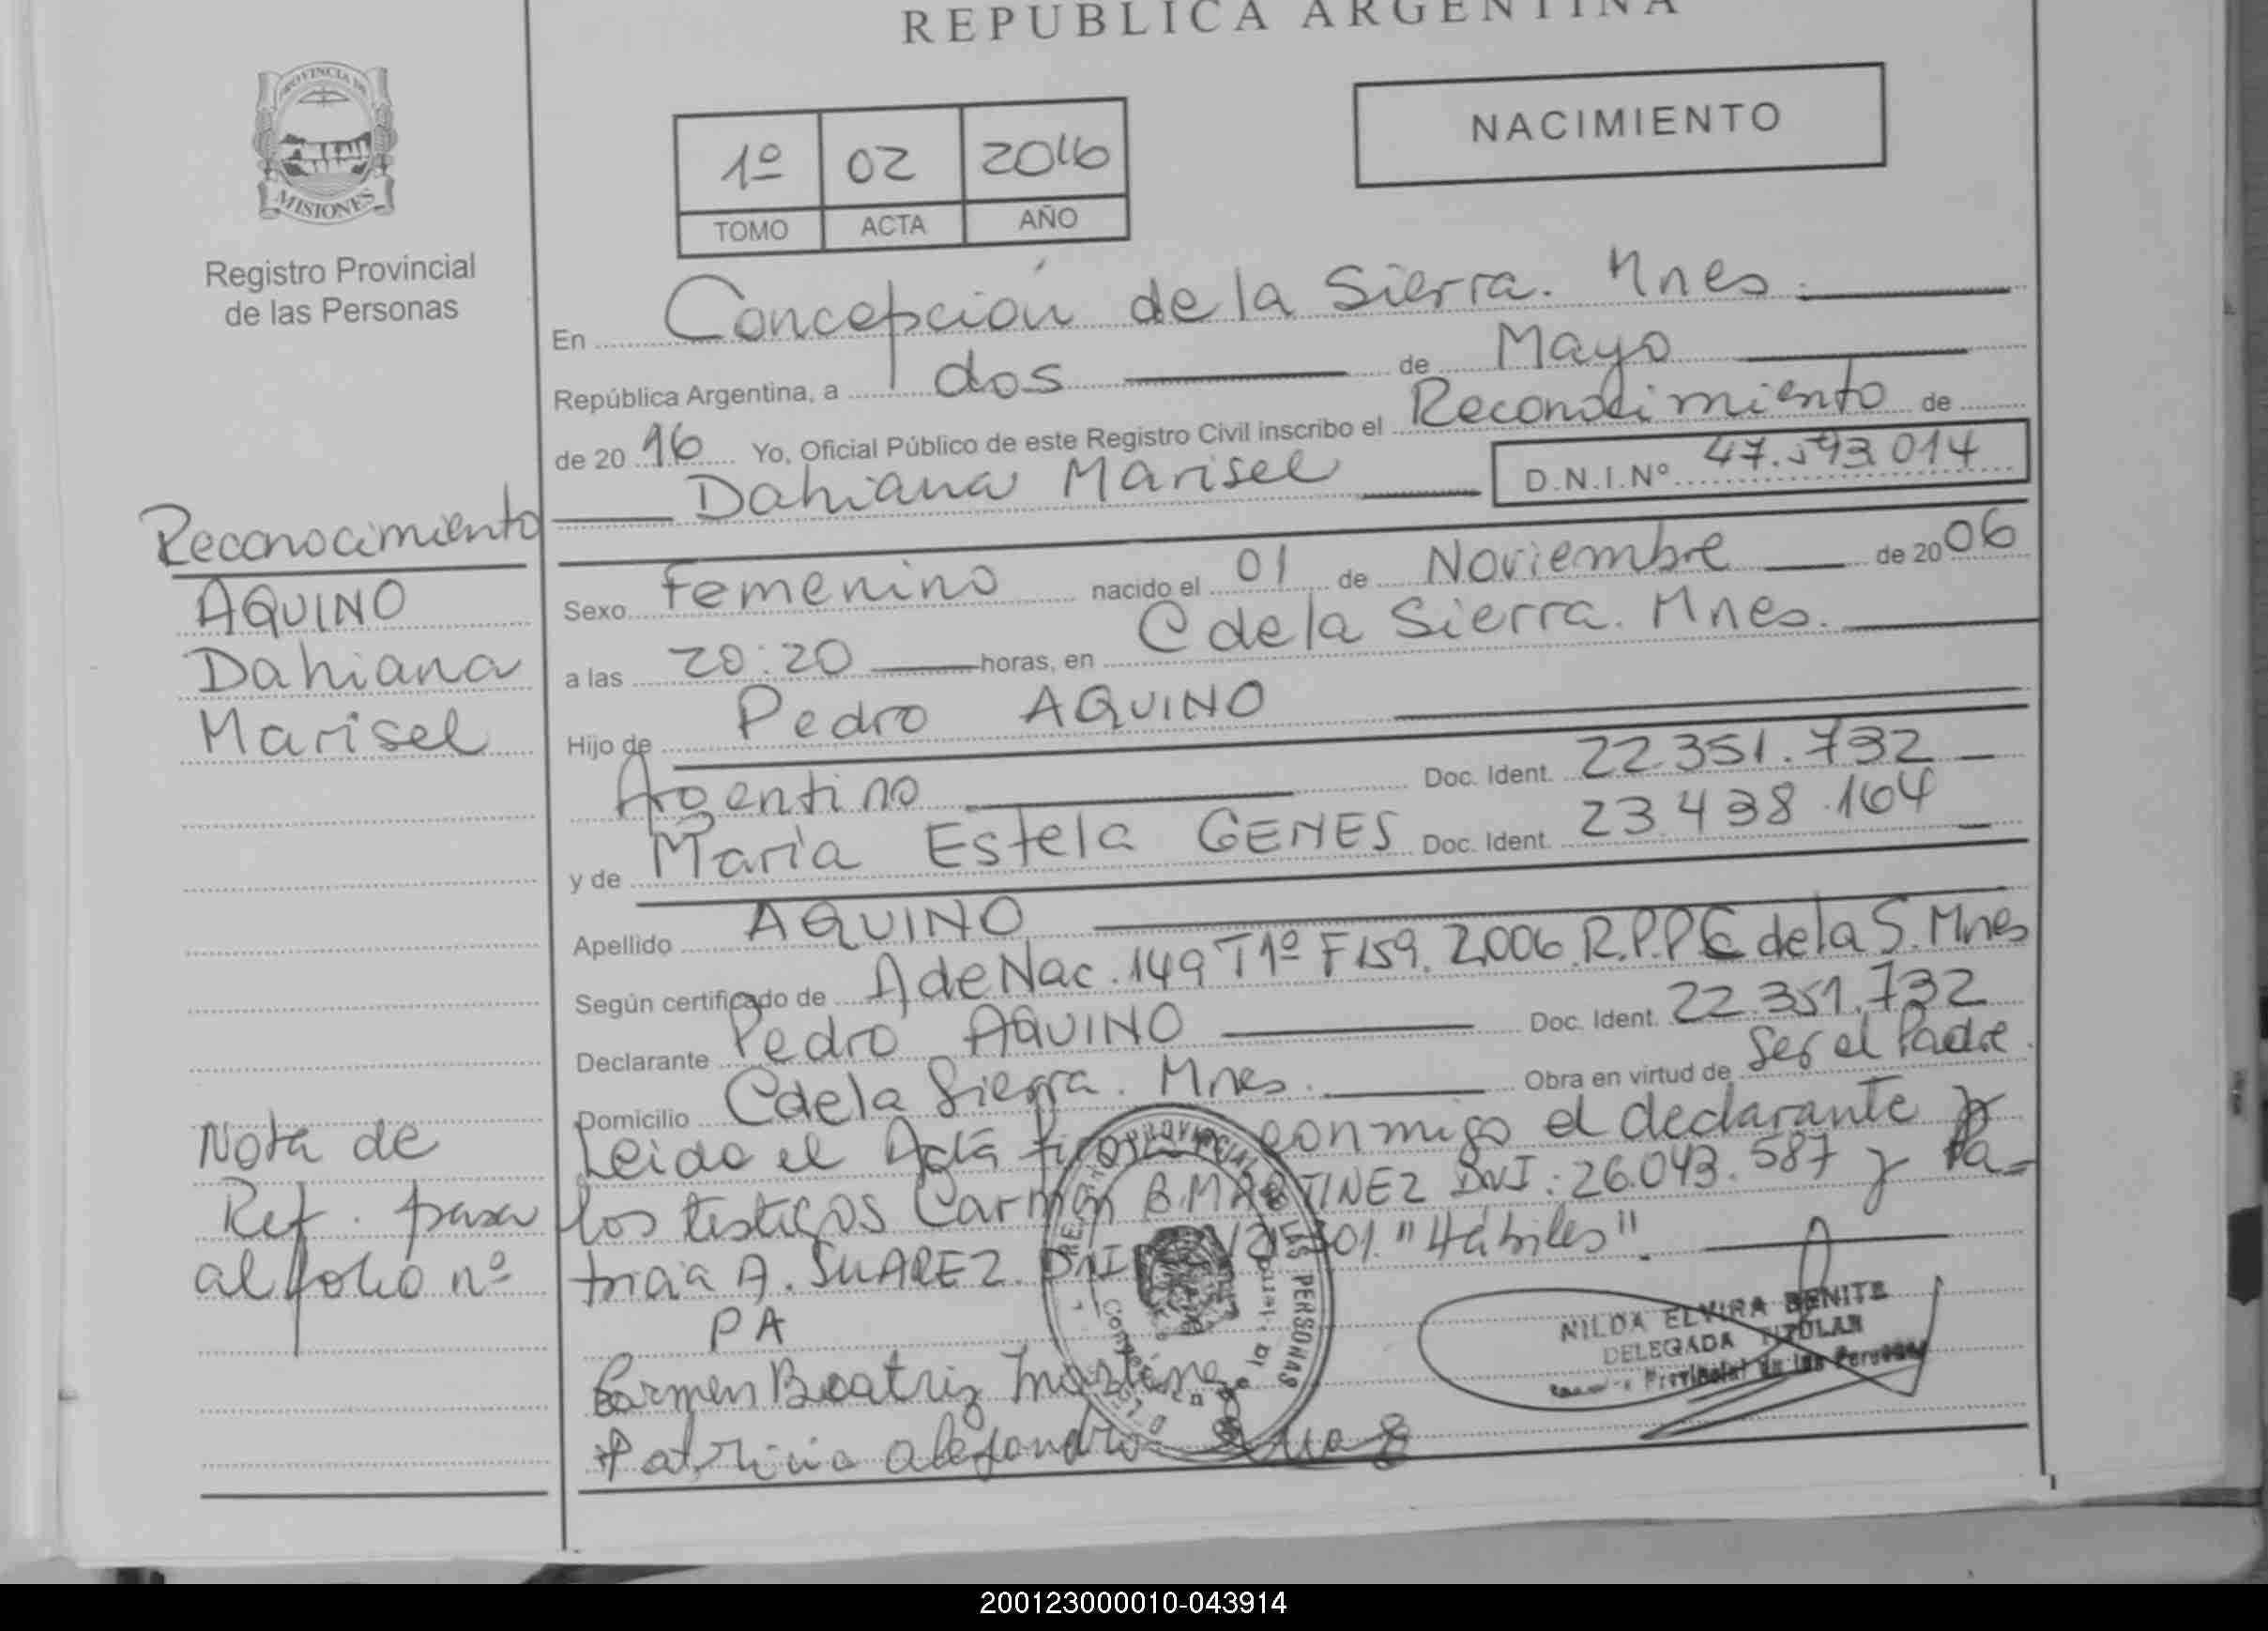 REPUBLICA ARGENTINA
PROVINCIA DE
MISIONES
Registro Provincial
de las Personas
1º 02 2016
TOMO ACTA AÑO
NACIMIENTO
En Concepción de la Sierra. Mnes.
República Argentina, a dos de Mayo
de 20 16 Yo, Oficial Público de este Registro Civil inscribo el Reconocimiento de
Dahiana Marisel D.N.I.Nº 47.593.014
Sexo Femenino nacido el 01 de Noviembre de 20 06
a las 20:20 horas, en C de la Sierra. Mnes.
Hijo de Pedro AQUINO
Argentino Doc. Ident. 22.351.732
y de María Estela GENES Doc. Ident. 23.438.164
Apellido AQUINO
Según certificado de A de Nac. 149 T 1º F 159. 2.006. R.P.P C de la S. Mnes
Declarante Pedro AQUINO Doc. Ident. 22.351.732
Domicilio C de la Sierra. Mnes. Obra en virtud de Ser el Padre.
Leido el Acta conmigo el declarante y
los testigos Carmen B. MARTINEZ DNI: 26.043.587 y Pa=
tricia A. SUAREZ. DNI "Hábiles".
PA
Carmen Beatriz
Patricia
Reconocimiento
AQUINO
Dahiana
Marisel
Nota de
Ref. pasa
al folio nº
PROVINCIAL DE LAS PERSONAS
NILDA ELVIRA BENITE
DELEGADA TITULAR
Provincial de las Personas
200123000010-043914